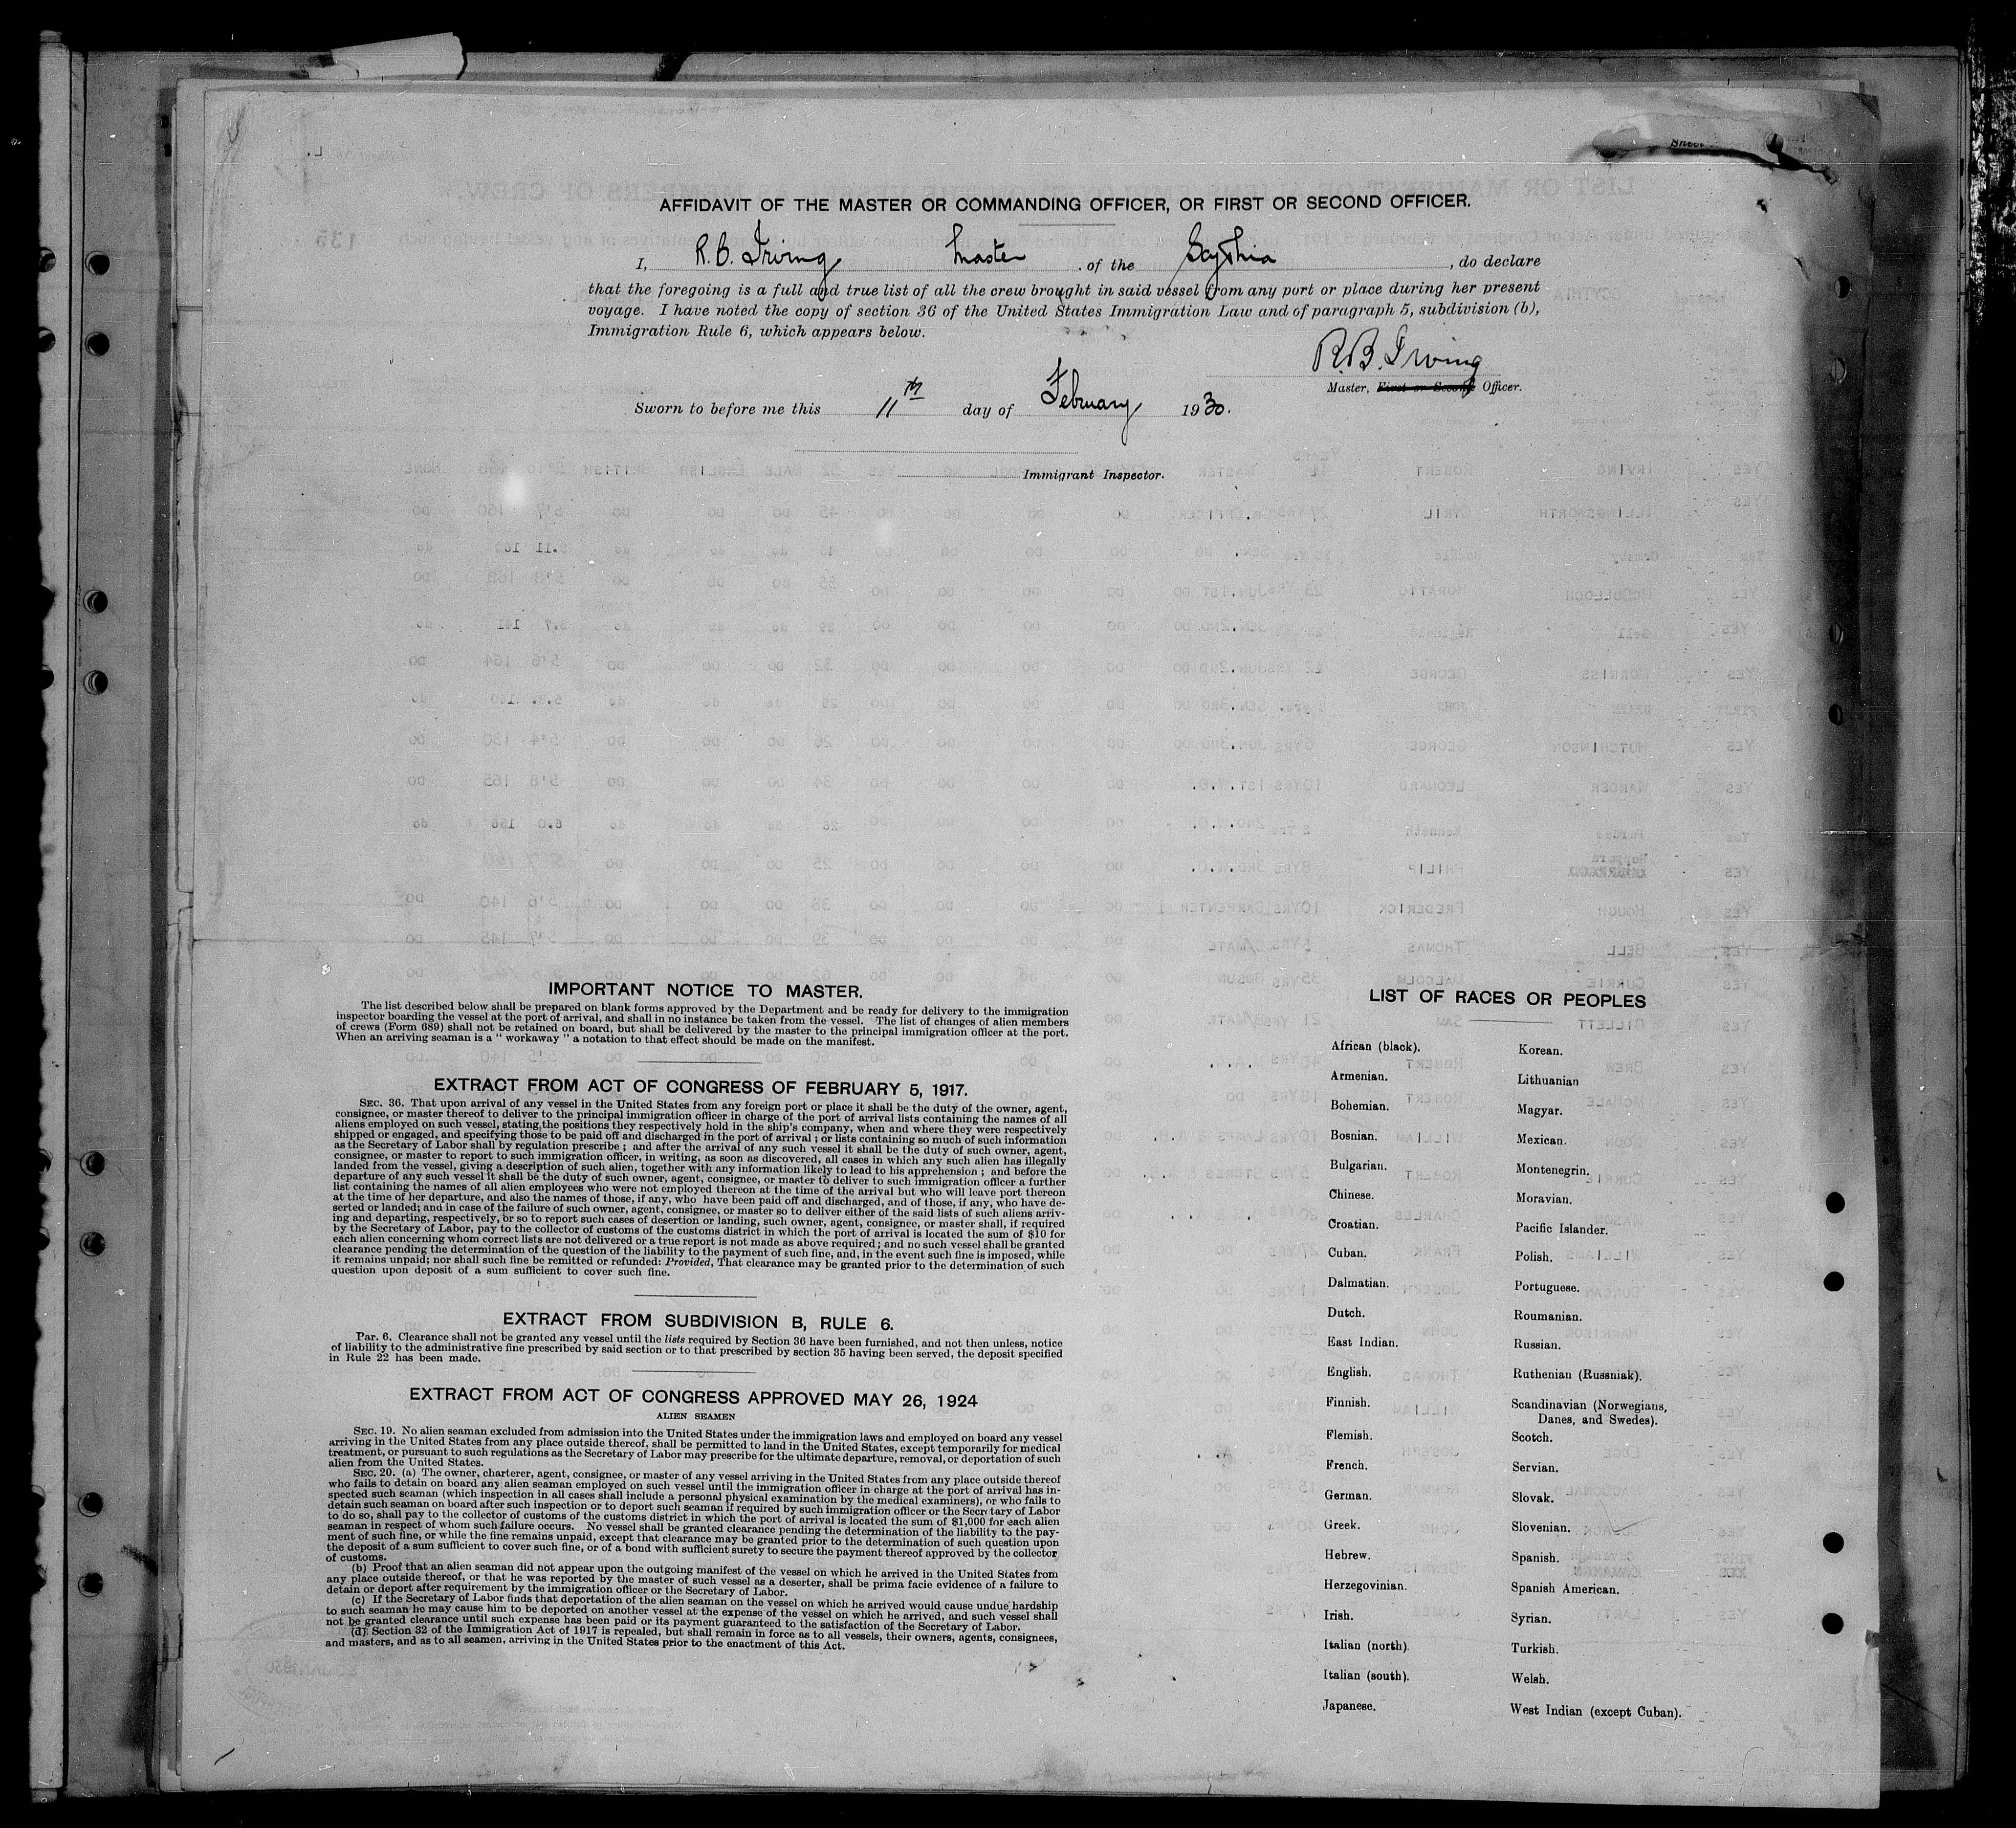 AFFIDAVIT OF THE MASTER OR COMMANDING OFFICER, OR FIRST OR SECOND OFFICER.
I, R. B. Irving Master of the Scythia, do declare
that the foregoing is a full and true list of all the crew brought in said vessel from any port or place during her present
voyage. I have noted the copy of section 36 of the United States Immigration Law and of paragraph 5, subdivision (b),
Immigration Rule 6, which appears below.
R.B. Irving
Master, First or Second Officer.
Sworn to before me this 11th day of February 1930.
Immigrant Inspector.
IMPORTANT NOTICE TO MASTER.
The list described below shall be prepared on blank forms approved by the Department and be ready for delivery to the immigration
inspector boarding the vessel at the port of arrival, and shall in no instance be taken from the vessel. The list of changes of alien members
of crews (Form 689) shall not be retained on board, but shall be delivered by the master to the principal immigration officer at the port.
When an arriving seaman is a " workaway " a notation to that effect should be made on the manifest.
EXTRACT FROM ACT OF CONGRESS OF FEBRUARY 5, 1917.
SEC. 36. That upon arrival of any vessel in the United States from any foreign port or place it shall be the duty of the owner, agent,
consignee, or master thereof to deliver to the principal immigration officer in charge of the port of arrival lists containing the names of all
aliens employed on such vessel, stating the positions they respectively hold in the ship's company, when and where they were respectively
shipped or engaged, and specifying those to be paid off and discharged in the port of arrival ; or lists containing so much of such information
as the Secretary of Labor shall by regulation prescribe ; and after the arrival of any such vessel it shall be the duty of such owner, agent,
consignee, or master to report to such immigration officer, in writing, as soon as discovered, all cases in which any such alien has illegally
landed from the vessel, giving a description of such alien, together with any information likely to lead to his apprehension ; and before the
departure of any such vessel it shall be the duty of such owner, agent, consignee, or master to deliver to such immigration officer a further
list containing the names of all alien employees who were not employed thereon at the time of the arrival but who will leave port thereon
at the time of her departure, and also the names of those, if any, who have been paid off and discharged, and of those, if any, who have de-
serted or landed; and in case of the failure of such owner, agent, consignee, or master so to deliver either of the said lists of such aliens arriv-
ing and departing, respectively, or so to report such cases of desertion or landing, such owner, agent, consignee, or master shall, if required
by the Secretary of Labor, pay to the collector of customs of the customs district in which the port of arrival is located the sum of $10 for
each alien concerning whom correct lists are not delivered or a true report is not made as above required ; and no such vessel shall be granted
clearance pending the determination of the question of the liability to the payment of such fine, and, in the event such fine is imposed, while
it remains unpaid; nor shall such fine be remitted or refunded: Provided, That clearance may be granted prior to the determination of such
question upon deposit of a sum sufficient to cover such fine.
EXTRACT FROM SUBDIVISION B, RULE 6.
Par. 6. Clearance shall not be granted any vessel until the lists required by Section 36 have been furnished, and not then unless, notice
of liability to the administrative fine prescribed by said section or to that prescribed by section 35 having been served, the deposit specified
in Rule 22 has been made.
EXTRACT FROM ACT OF CONGRESS APPROVED MAY 26, 1924
ALIEN SEAMEN
SEC. 19. No alien seaman excluded from admission into the United States under the immigration laws and employed on board any vessel
arriving in the United States from any place outside thereof, shall be permitted to land in the United States, except temporarily for medical
treatment, or pursuant to such regulations as the Secretary of Labor may prescribe for the ultimate departure, removal, or deportation of such
alien from the United States.
SEC. 20. (a) The owner, charterer, agent, consignee, or master of any vessel arriving in the United States from any place outside thereof
who fails to detain on board any alien seaman employed on such vessel until the immigration officer in charge at the port of arrival has in-
spected such seaman (which inspection in all cases shall include a personal physical examination by the medical examiners), or who fails to
detain such seaman on board after such inspection or to deport such seaman if required by such immigration officer or the Secretary of Labor
to do so, shall pay to the collector of customs of the customs district in which the port of arrival is located the sum of $1,000 for each alien
seaman in respect of whom such failure occurs. No vessel shall be granted clearance pending the determination of the liability to the pay-
ment of such fine, or while the fine remains unpaid, except that clearance may be granted prior to the determination of such question upon
the deposit of a sum sufficient to cover such fine, or of a bond with sufficient surety to secure the payment thereof approved by the collector
of customs.
(b) Proof that an alien seaman did not appear upon the outgoing manifest of the vessel on which he arrived in the United States from
any place outside thereof, or that he was reported by the master of such vessel as a deserter, shall be prima facie evidence of a failure to
detain or deport after requirement by the immigration officer or the Secretary of Labor.
(c) If the Secretary of Labor finds that deportation of the alien seaman on the vessel on which he arrived would cause undue hardship
to such seaman he may cause him to be deported on another vessel at the expense of the vessel on which he arrived, and such vessel shall
not be granted clearance until such expense has been paid or its payment guaranteed to the satisfaction of the Secretary of Labor.
(d) Section 32 of the Immigration Act of 1917 is repealed, but shall remain in force as to all vessels, their owners, agents, consignees,
and masters, and as to all seamen, arriving in the United States prior to the enactment of this Act.
LIST OF RACES OR PEOPLES
African (black).
Armenian.
Bohemian.
Bosnian.
Bulgarian.
Chinese.
Croatian.
Cuban.
Dalmatian.
Dutch.
East Indian.
English.
Finnish.
Flemish.
French.
German.
Greek.
Hebrew.
Herzegovinian.
Irish.
Italian (north).
Italian (south).
Japanese.
Korean.
Lithuanian
Magyar.
Mexican.
Montenegrin.
Moravian.
Pacific Islander.
Polish.
Portuguese.
Roumanian.
Russian.
Ruthenian (Russniak).
Scandinavian (Norwegians,
Danes, and Swedes).
Scotch.
Servian.
Slovak.
Slovenian.
Spanish.
Spanish American.
Syrian.
Turkish.
Welsh.
West Indian (except Cuban).